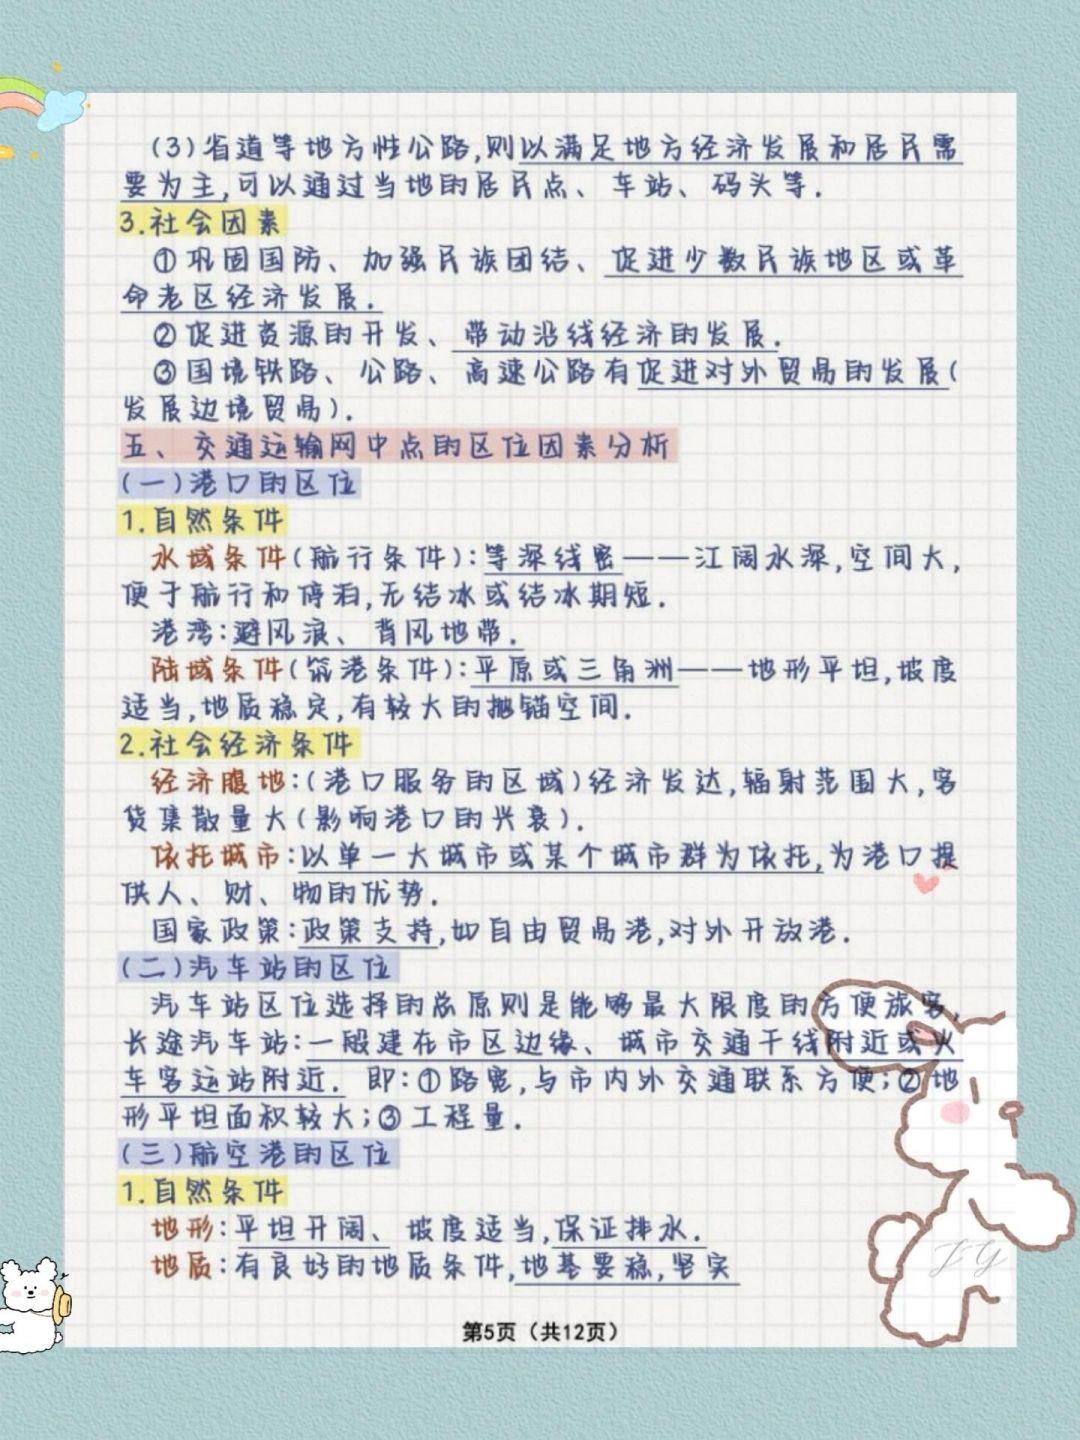 (3)省道等地方性公路,则以满足地方经济发展和居民需
要为主,可以通过当地的居民点、车站、码头等.
3.社会因素
①巩固国防、加强民族团结、促进少数民族地区或革
命老区经济发展.
②促进资源的开发、带动沿线经济的发展.
③国境铁路、公路、高速公路有促进对外贸易的发展(
发展边境贸易).
五、交通运输网中点的区位因素分析
(一)港口的区位
1.自然条件
水域条件(航行条件):等深线密——江阔水深,空间大,
便于航行和停泊,无结冰或结冰期短.
港湾:避风浪、背风地带.
陆域条件(筑港条件):平原或三角洲——地形平坦,坡度
适当,地质稳定,有较大的抛锚空间.
2.社会经济条件
经济腹地:(港口服务的区域)经济发达,辐射范围大,客
货集散量大(影响港口的兴衰).
依托城市:以单一大城市或某个城市群为依托,为港口提
供人、财、物的优势.
国家政策:政策支持,如自由贸易港,对外开放港.
(二)汽车站的区位
汽车站区位选择的总原则是能够最大限度的方便旅客,
长途汽车站:一般建在市区边缘、城市交通干线附近或火
车客运站附近. 即:①路宽,与市内外交通联系方便;②地
形平坦面积较大;③工程量.
(三)航空港的区位
1.自然条件
地形:平坦开阔、坡度适当,保证排水.
地质:有良好的地质条件,地基要稳,坚实
JY
第5页（共12页）